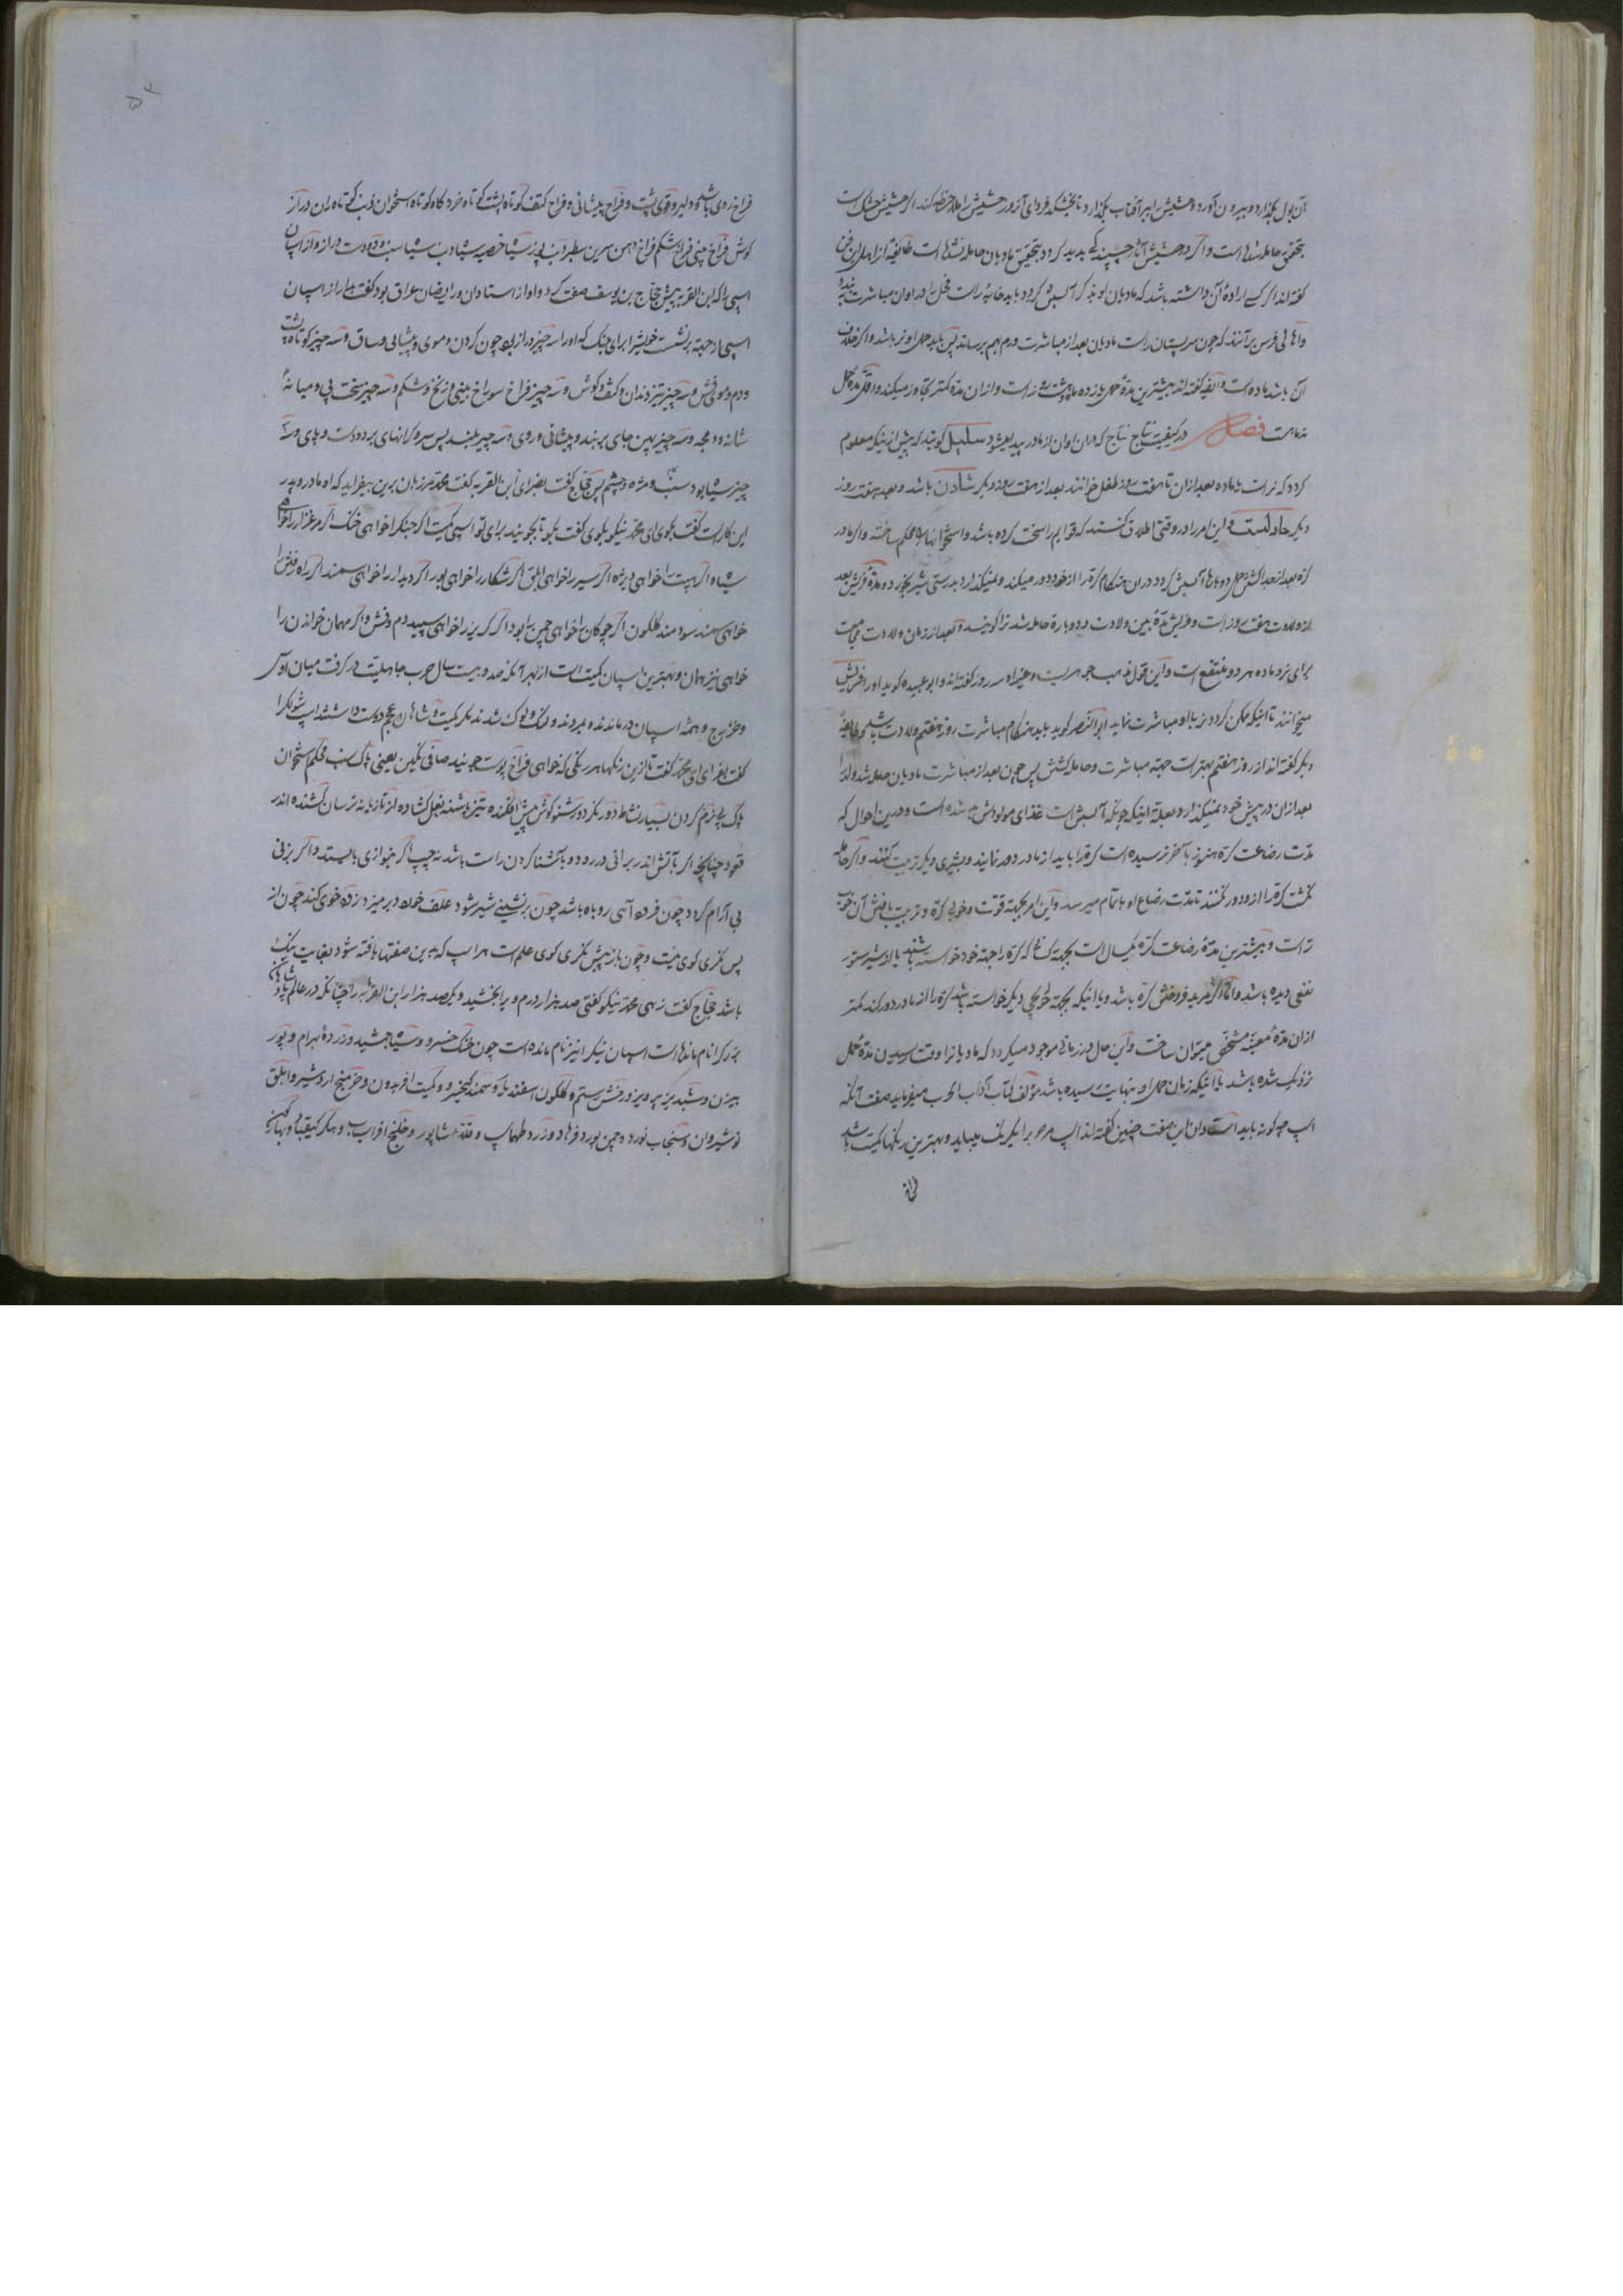 آن بول بگذارد و بیرون آورد و حشیش را بر آفتاب بگذارد تا بخشکد فردای آنروز حشیش را ملاحظه کند اگر حشیش خشک است
بتحقیق حامله نشده است و اگر در حشیش آثار چسپندگی پدید گردد بتحقیق مادیان حامله شده است طایفه از اهل این فن
گفته‌اند اگر کسی اراده آن داشته باشد که مادیان او بنر کره آبستن گردد باید خایه راست فحل را در اوان مباشرت ببندد
و اهالی فرس برآنند که چون سر پستان راست مادیان بعد از مباشرت ورم بهم رساند پس باید حمل او نر باشد و اگر خلاف
آن باشد ماده است و گفته‌اند بیشترین مدة حمل یازده ماه و هشت روز است و ازان مدة کمتر تجاوز میکند و اقل مدة حمل
نه ماه است فصل در کیفیت نتاج نتاج که دران اوان از مادر پدید میشود سلیل گویند که پیش از اینکه معلوم
گردد که نر است یا ماده بعد ازان تا هفت روز طفل خوانند بعد از هفت روز دیگر شادن باشد و بعد هفت روز
دیگر جادلست و این امر را در وقتی اطلاق کنند که قوایم را سخت کرده باشد و استخوانها را محکم ساخته و اگر مادر
کره بعد از جدا کشتن حمل دوباره آبستن گردد دران هنگام کره را از خود دور میکند و نمیگذارد بدرستی شیر بخورد و مدة فریش بعد
از ولادت هفت روز است و فریش مدة بین ولادت و دوباره حامله شدن را گویند و بعد از زمان ولادت
برای نر و ماده هر دو منتفع است و این قول مذهب جوهریست و غیر او سه روز گفته‌اند و ابو عبیده گوید او را فریش
میخوانند تا اینکه ممکن گردد نر با او مباشرت نماید ابو النصر گوید باید هنگام مباشرت روز هفتم ولادت باشد و طایفه
دیگر گفته‌اند از روز هفتم بهتر است جهة مباشرت و حامله گشتن پس چون بعد از مباشرت مادیان حامله شد ولد را
بعد ازان در پیش خود نمیگذارد و بعلة اینکه چونکه آبستن است غذای مولودش شده است و درین احوال که
مدت رضاعت کره هنوز بآخر نرسیده است کره را باید از مادر دور نمایند و بشیری دیگر تربیت کنند و اگر حامله
نگشت کره را از او دور نکنند تا مدت رضاع او باتمام میرسد و این امر بجهة قوت و خوبی کره و تربیت یافتن آن خوب
تر است و بیشترین مدة رضاعت کره یکسال است بجهة کسانی که کره را جهة خود خواسته باشند یا از شیر ستور
نفعی دیده باشد و اما اگر مرید فروختن کره باشد و یا اینکه بجهة حوایجی دیگر خواسته باشد کره را از مادر دور کند کمتر
ازان مدة معینه مشخص میتوان ساخت و این حال در زمانی موجود میگردد که مادیانرا وقت رسیدن مدة حمل
نزدیک شده باشد یا اینکه زمان حمل او بنهایت رسیده باشد مؤلف کتاب آداب الحرب میفرماید صفت آنکه
اسپ چه گونه باید است دان این صفت چنین گفته‌اند اسپ مرد حرب را یکرنگ میباید و بهترین رنگها کمیت باشد
فراخ
۵۴
فراخ روی باشد و دلیر و قوی پشت و فراخ پیشانی و فراخ کتف کوتاه پشت کوتاه خرد گاه کوتاه استخوان ذنب کوتاه ران دراز
گوش فراخ بینی فراخ شکم فراخ دهن سرین سطبر سیاه خصیه سیاه لب سیاه سنب و دو دست دراز و از اسپان
اسپی را که ابن القریه پیش حجاج بن یوسف صفت کرد و او از استادان و رایضان عراق بود گفت بیار از اسپان
اسپی از جهة برنشست خویش را برای جنگ که او را سه چیز دراز بود چون گردن و موی و پیشانی و ساق و سه چیز کوتاه پشت
و دم و موی فش و سه چیز تیز دندان و کتف و گوش و سه چیز فراخ سوراخ بینی و زنخ و شکم و سه چیز سخت پی و میانه
شانه و و سه چیز پهن جای بر بند و پیشانی و روی و سه چیز بلند پس سر و کرانهای بر دو دست و پای و سه
چیز سیاه بود سنب و مژه و چشم پس حجاج گفت بفزای ابن القریه گفت محمد مرزبان برین بیفزاید که او مادر و پدر
این کار است گفت بگوی ای محمد نیکو بگوی گفت بگو تا بجویند برای تو اسپی کمیت اگر جنگ را خواهی خنگ اگر مرغزار را خواهی
سیاه اگر هیبت را خواهی ویژه اگر سیر را خواهی ابلق اگر شکار را خواهی بور اگر دیدار را خواهی سمند اگر راه رفتن را
خواهی سمند سودمند گلگون اگر چوگان را خواهی چمن را بود اگر گریز را خواهی سپید دم و فش و اگر مهمان خواندن را
خواهی نیز همان و بهترین اسپان کمیت است از بهر آنکه صد و بیست سال حرب جاهلیت در گرفت میان اوس
و خزرج و همه اسپان درماندند و بمردند و لنگ و لوک شدند مگر کمیت و شاهان عجم دوست داشتند اسپ شولک را
گفت بفزای ای محمد گفت تا ازین رنگها هر رنگی که خواهی فراخ پوست جویند صافی نگین یعنی پاک سنب محکم استخوان
پاک پی نرم گردن بسیار نشاط دور نگر دور شنو گوش پیش افکنده تیز پاشنه بغل گشاده از تازیانه ترسان کشنده اندر
قود چنانچه اگر بآتش اندر برانی در رود و بآشنا کردن راست باشد نه چپ اگر بنوازی بایستد و اگر بزنی
بی آرام گردد چون فروه آئی روباه باشد چون برنشینی شیر شود علف خواه دیر میز و زود خوی کند چون از
پس نگری گوی هست و چون از پیش نگری گوی علم است هر اسپ که بدین صفتها یافته شود بغایت نیک
باشد حجاج گفت زهی محمد نیکو گفتی صد هزار درم ویرا بخشید و یکصد هزار ابن القریه را چنانکه در عالم پادشاهان
بزرگرا نام مانده است اسپان نیک را نیز نام مانده است چون خنگ خسرو و سیاه جمشید و زرده بهرام و بور
بیژن و شبدیز پرویز و رخش رستم و گلگون اسفندیار و سمند کیخسرو و کمیت افریدون و خرمنج اردشیر و ابلق
نوشیروان و سنجاب نوذر و چمن پور فرهاد و زرد طهماسپ و شاپور و خلنج افراسیاب و کیقباد و